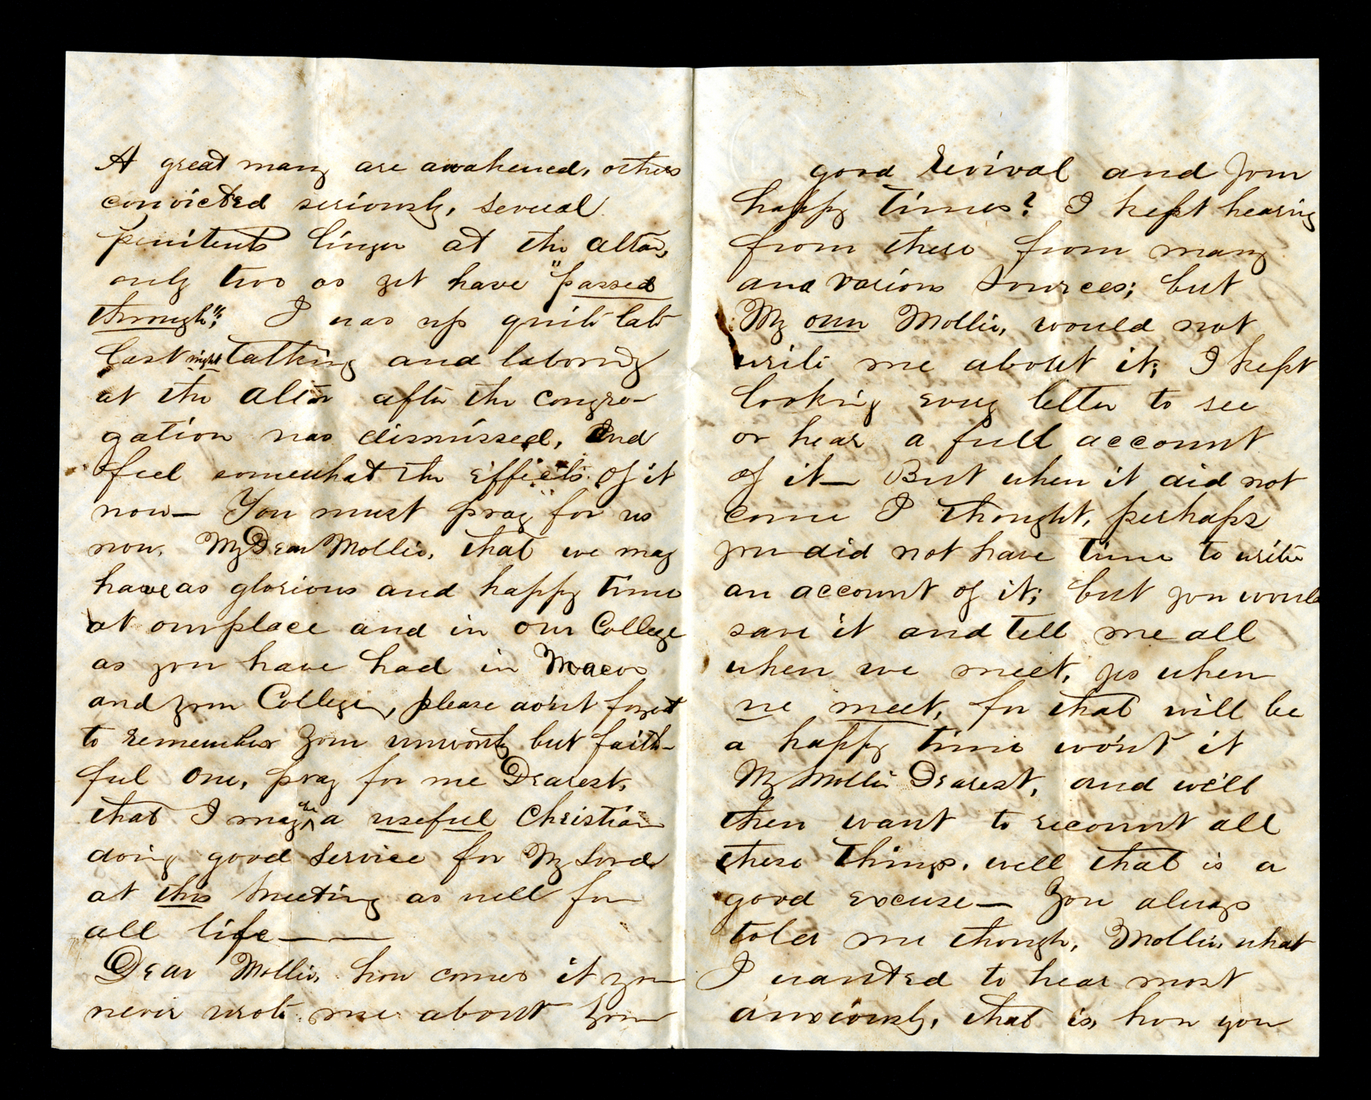 A great many are awakened, others
convicted seriously, several
penitents linger at the altar,
only two as yet have "passed
through"; I was up quite late
last night talking and laboring
at the altar after the congre-
gation was dismissed, and
feel somewhat the effects of it
now— You must "pray" for us
now, My Dear Mollie, that we may
have as glorious and happy time
at our place and in our College
as you have had in Macon
and your College, please don't forget
to remember your unworthy but faith-
ful one, pray for me Dearest,
that I may be a useful Christian
doing good service for My Lord
at this meeting as well for
all life——
Dear Mollie, how comes it you
never wrote me about your
good revival and your
happy times? I kept hearing
from these from many
and various sources; but
My own Mollie, would not
write me about it; I kept
looking every letter to see
or hear a full account
of it— But when it did not
come I thought, perhaps
you did not have time to write
an account of it; but you would
save it and tell me all
when we meet, yes when
we meet, for that will be
a happy time won't it
My Mollie Dearest, and we'll
then want to recount all
these things. well that is a
good excuse— You always
told me though, Mollie, what
I wanted to hear most
anxiously, that is, how you